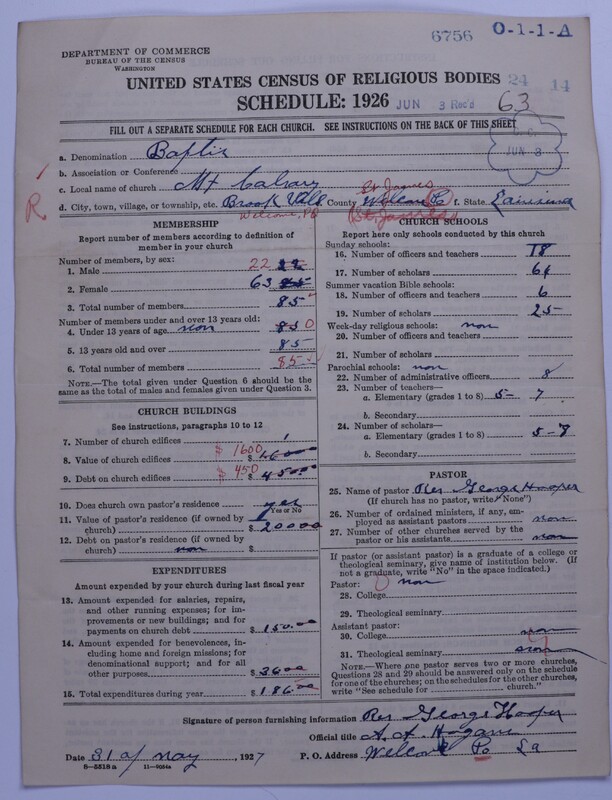 6756 O-1-1-A
DEPARTMENT OF COMMERCE
BUREAU OF THE CENSUS
WASHINGTON
UNITED STATES CENSUS OF RELIGIOUS BODIES 24 14
SCHEDULE: 1926 JUN 3 Rec'd 63
FILL OUT A SEPARATE SCHEDULE FOR EACH CHURCH. SEE INSTRUCTIONS ON THE BACK OF THIS SHEET
JUN 3
a. Denomination Baptis
b. Association or Conference
c. Local name of church Mt Calvary St James
d. City, town, village, or township, etc. Brook Vill County Welcom Po f. State
R Welcome, PO St. James
MEMBERSHIP
Report number of members according to definition of member in your church
Number of members, by sex:
1. Male 22 22
2. Female 63 85
3. Total number of members 85
Number of members under and over 13 years old:
4. Under 13 years of age non 850
5. 13 years old and over 85
6. Total number of members 85
NOTE.—The total given under Question 6 should be the same as the total of males and females given under Question 3.
CHURCH BUILDINGS
See instructions, paragraphs 10 to 12
7. Number of church edifices 1
8. Value of church edifices $1600 $
9. Debt on church edifices $450 $ 45000
10. Does church own pastor's residence yes
Yes or No
11. Value of pastor's residence (if owned by church) $ 20000
12. Debt on pastor's residence (if owned by church) non $
EXPENDITURES
Amount expended by your church during last fiscal year
13. Amount expended for salaries, repairs, and other running expenses; for improvements or new buildings; and for payments on church debt $ 150.00
14. Amount expended for benevolences, including home and foreign missions; for denominational support; and for all other purposes $ 36.00
15. Total expenditures during year $ 186.00
CHURCH SCHOOLS
Report here only schools conducted by this church
Sunday schools:
16. Number of officers and teachers 18
17. Number of scholars
Summer vacation Bible schools:
18. Number of officers and teachers 6
19. Number of scholars 25
Week-day religious schools: non
20. Number of officers and teachers
21. Number of scholars
Parochial schools: non
22. Number of administrative officers 8
23. Number of teachers—
a. Elementary (grades 1 to 8) 5- 7
b. Secondary
24. Number of scholars—
a. Elementary (grades 1 to 8) 5-7
b. Secondary
PASTOR
25. Name of pastor Rev George Hooper
(If church has no pastor, write "None")
26. Number of ordained ministers, if any, employed as assistant pastors non
27. Number of other churches served by the pastor or his assistants non
If pastor (or assistant pastor) is a graduate of a college or theological seminary, give name of institution below. (If not a graduate, write "No" in the space indicated.)
Pastor: non
28. College
29. Theological seminary
Assistant pastor:
30. College non
31. Theological seminary non
NOTE.—Where one pastor serves two or more churches, Questions 28 and 29 should be answered only on the schedule for one of the churches; on the schedules for the other churches, write "See schedule for ______ church."
Signature of person furnishing information Rev George Hooper
Official title A. A. Hogan
Date 31 of may, 1927 P. O. Address Welcom Po La
8—5518a 11—9024a